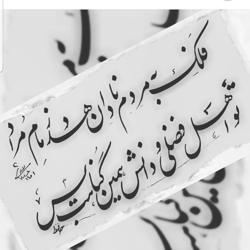 فلک به مردم نادان دهد زمام مراد
تو اهل فضلی و دانش همین گناهت بس
حافظ